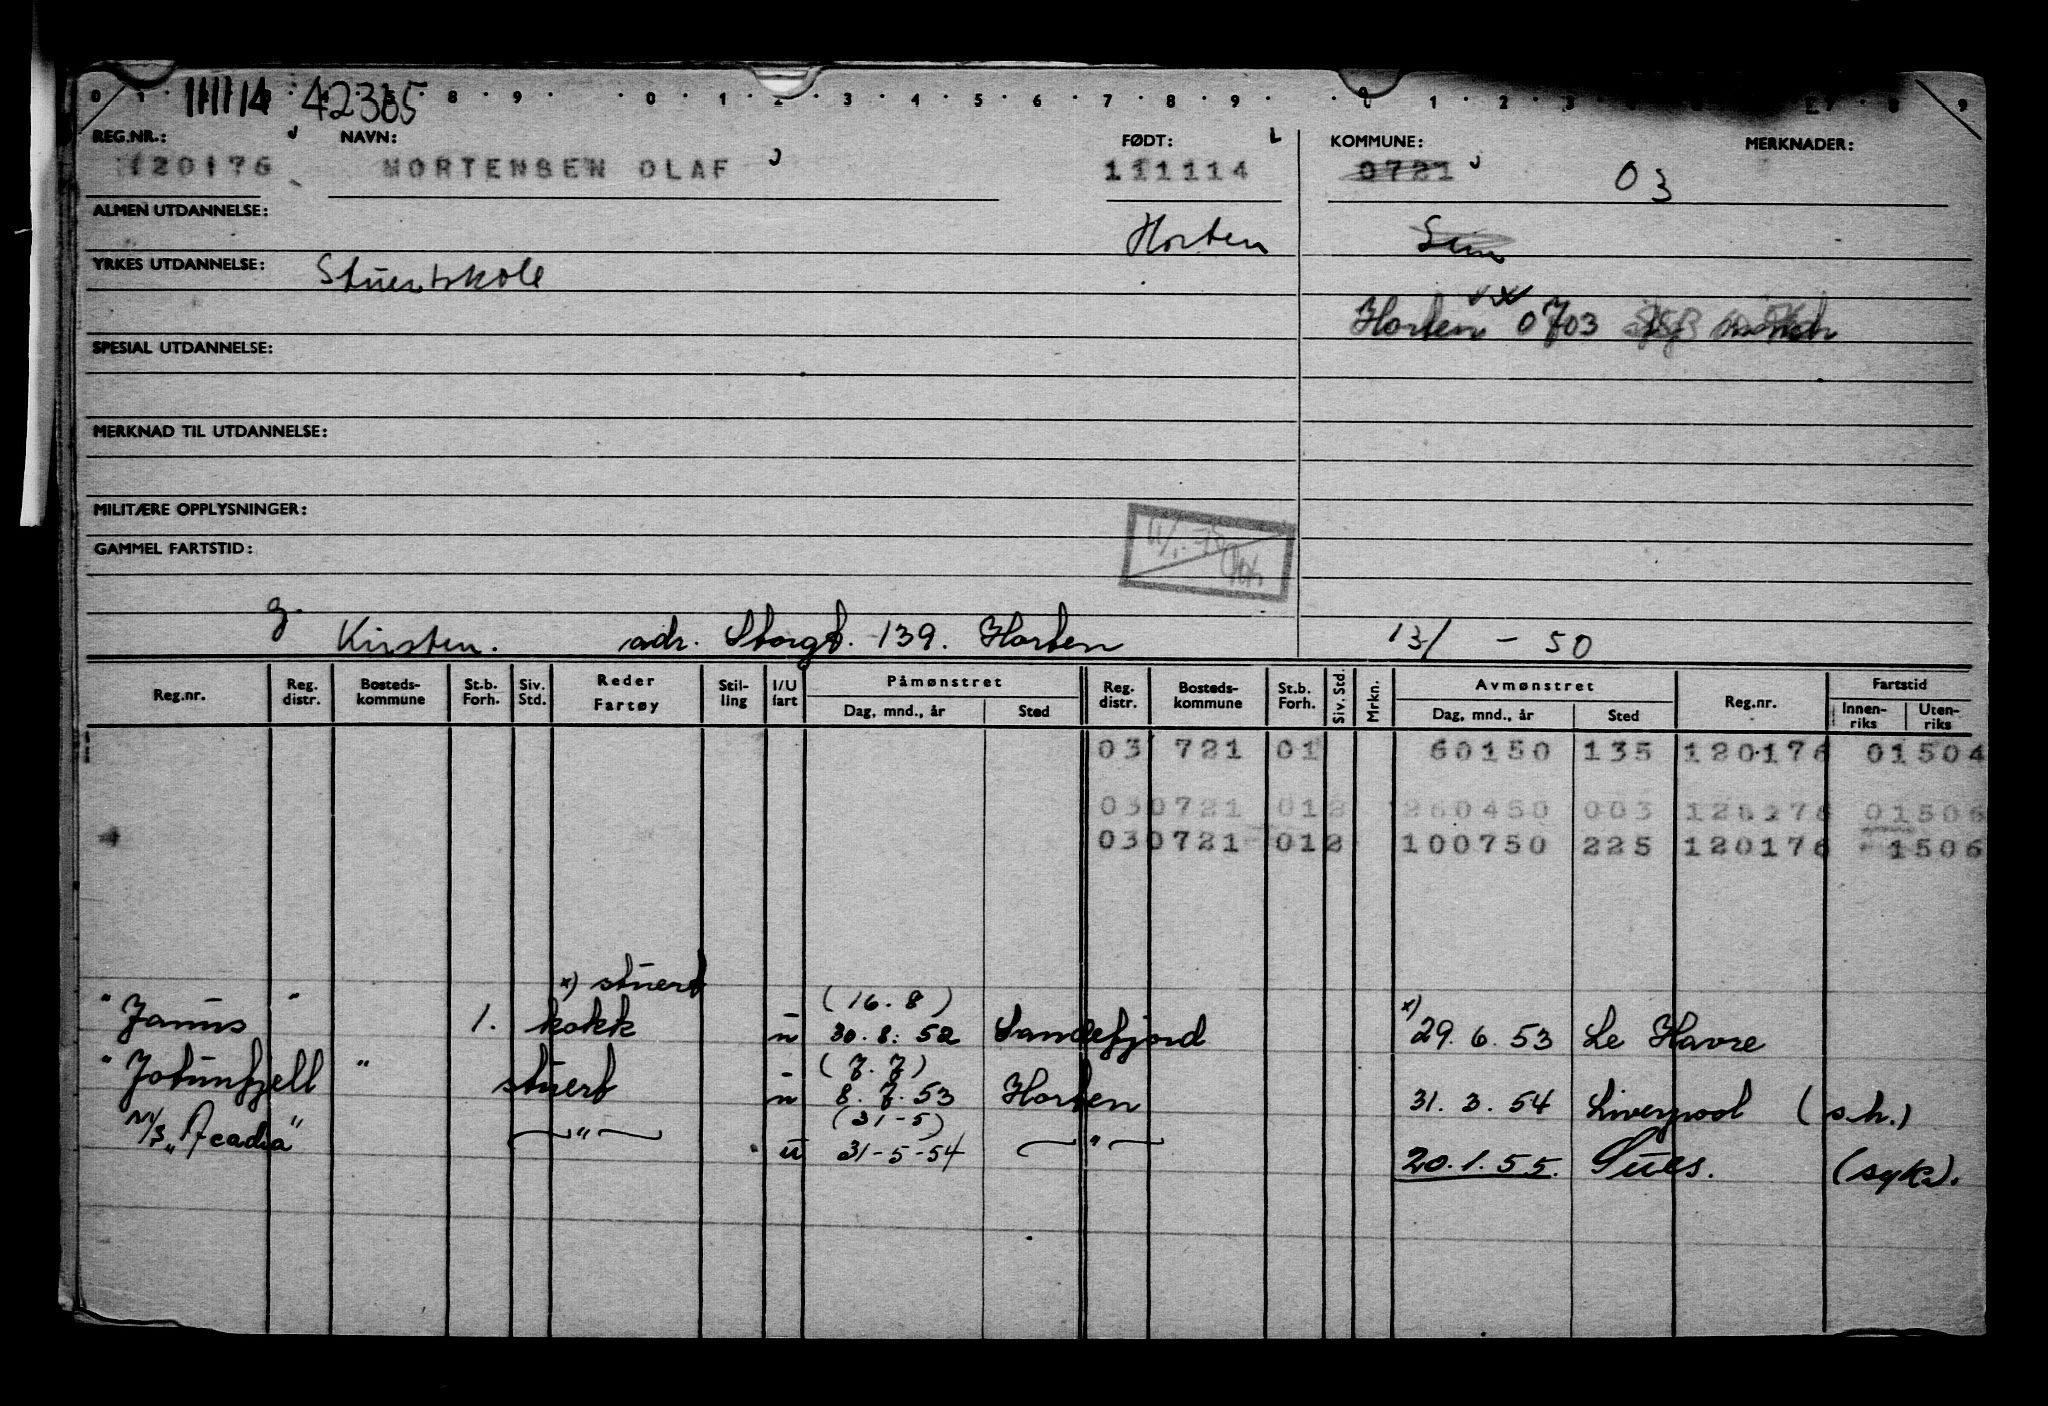 0 1 8 9 0 1 2 3 4 5 6 7 8 9 0 1 2 3 7 8 9
111114 42365
REG.NR.: NAVN: FØDT: L KOMMUNE: MERKNADER:
120176 MORTENSEN OLAF 111114 0721 03
ALMEN UTDANNELSE:
Horten Sem
YRKES UTDANNELSE: Stuertskole
Horten 0703
SPESIAL UTDANNELSE:
MERKNAD TIL UTDANNELSE:
MILITÆRE OPPLYSNINGER:
GAMMEL FARTSTID:
g. Kirsten. adr. Storgt. 139. Horten 13/ - 50
Reg.nr. Reg. distr. Bosteds-kommune St.b. Forh. Siv. Std. Reder Fartøy Stil-ling I/U fart Påmønstret Dag, mnd., år Sted Reg. distr. Bosteds-kommune St.b. Forh. Siv. Std. Mrkn. Avmønstret Dag, mnd., år Sted Reg.nr. Fartstid Innen-riks Uten-riks
03 721 01 60150 135 120176 01504
030721 012 260450 003 120176 01506
030721 012 100750 225 120176 1506
x) stuert
(16.8) x)
"Janus" 1. kokk u 30.8.52 Sandefjord 29.6.53 Le Havre
(7.7)
"Jotunfjell" stuert u 8.7.53 Horten 31.3.54 Liverpool (s.h.)
(31-5)
M/S "Acadia" —"— u 31-5-54 —"— 20.1.55. Sues. (syk).